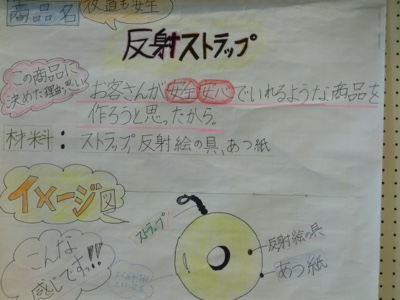 商品名
夜道も安全
反射ストラップ
この商品に
決めた理由
お客さんが安全安心でいれるような商品を
作ろうと思ったから。
材料：ストラップ、反射絵の具、あつ紙
イメージ図
ストラップ
反射絵の具
あつ紙
こんな
感じです!!